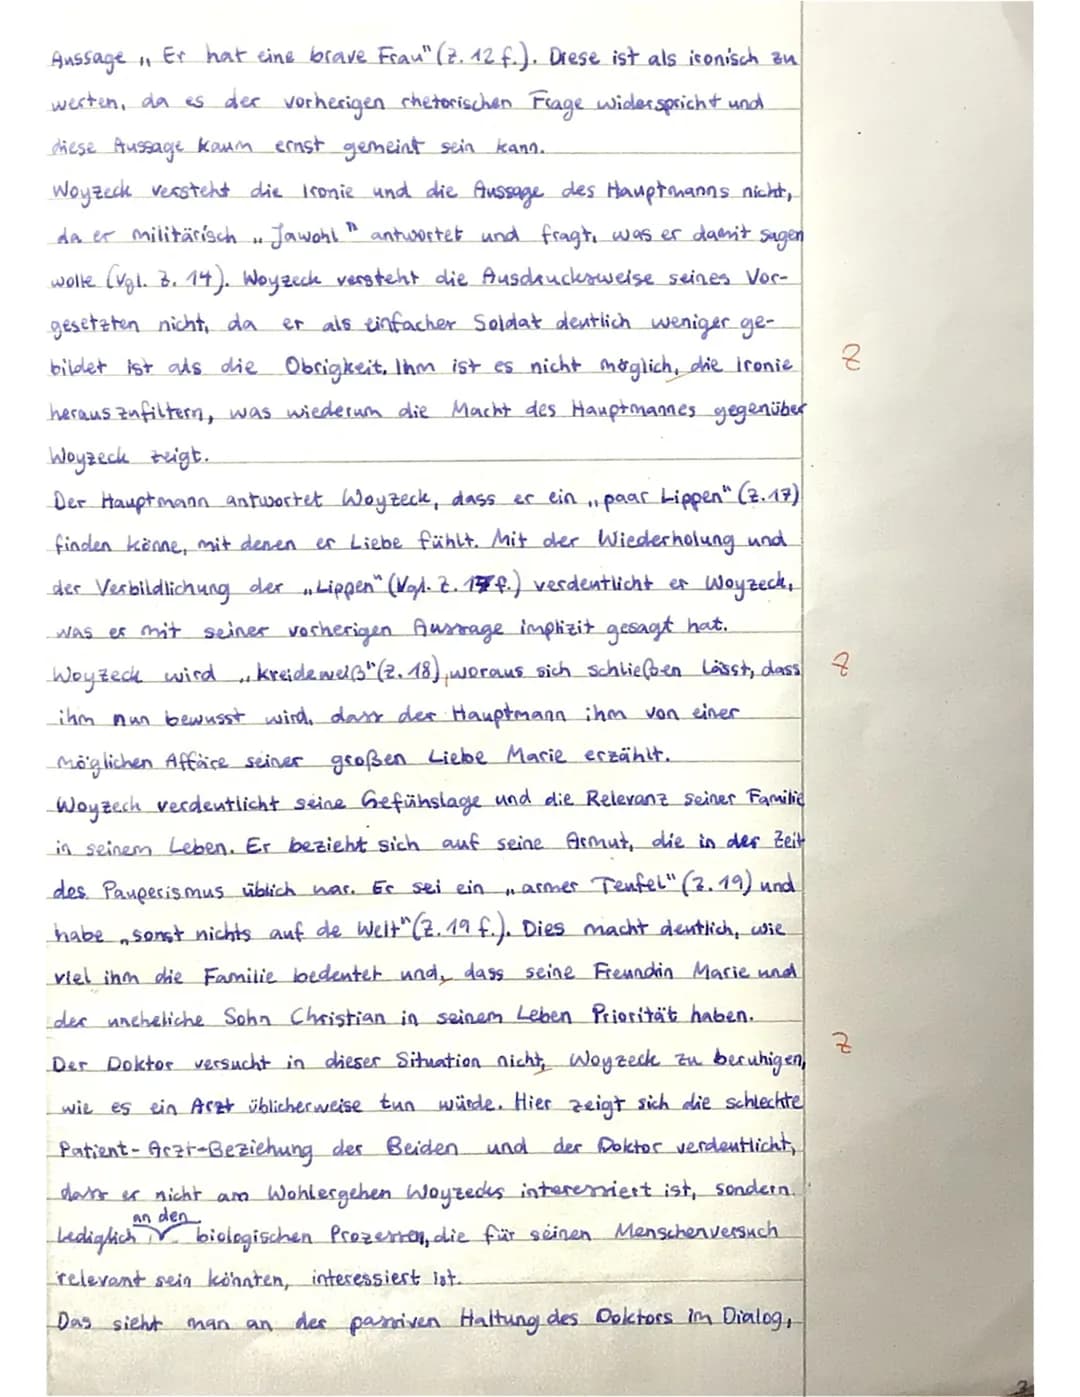 Aussage „Er hat eine brave Frau" (Z. 12 f.). Diese ist als ironisch zu
werten, da es der vorherigen rhetorischen Frage widerspricht und
diese Aussage kaum ernst gemeint sein kann.
Woyzeck versteht die Ironie und die Aussage des Hauptmanns nicht,
da er militärisch „Jawohl" antwortet und fragt, was er damit sagen
wolle (Vgl. Z. 14). Woyzeck versteht die Ausdrucksweise seines Vor-
gesetzten nicht, da er als einfacher Soldat deutlich weniger ge-
bildet ist als die Obrigkeit. Ihm ist es nicht möglich, die Ironie
Z
herauszufiltern, was wiederum die Macht des Hauptmannes gegenüber
Woyzeck zeigt.
Der Hauptmann antwortet Woyzeck, dass er ein „paar Lippen" (Z. 17)
finden könne, mit denen er Liebe fühlt. Mit der Wiederholung und
der Verbildlichung der „Lippen" (Vgl. Z. 17 f.) verdeutlicht er Woyzeck,
was er mit seiner vorherigen Aussage implizit gesagt hat.
Woyzeck wird „kreideweiß" (Z. 18), woraus sich schließen lässt, dass
Z
ihm nun bewusst wird, dass der Hauptmann ihm von einer
möglichen Affäre seiner großen Liebe Marie erzählt.
Woyzeck verdeutlicht seine Gefühslage und die Relevanz seiner Familie
in seinem Leben. Er bezieht sich auf seine Armut, die in der Zeit
des Pauperismus üblich war. Er sei ein „armer Teufel" (Z. 19) und
habe „sonst nichts auf de Welt" (Z. 19 f.). Dies macht deutlich, wie
viel ihm die Familie bedeutet und, dass seine Freundin Marie und
der uneheliche Sohn Christian in seinem Leben Priorität haben.
Der Doktor versucht in dieser Situation nicht, Woyzeck zu beruhigen,
Z
wie es ein Arzt üblicherweise tun würde. Hier zeigt sich die schlechte
Patient-Arzt-Beziehung der Beiden und der Doktor verdeutlicht,
dass er nicht am Wohlergehen Woyzecks interessiert ist, sondern
lediglich an den biologischen Prozessen, die für seinen Menschenversuch
relevant sein könnten, interessiert ist.
Das sieht man an der passiven Haltung des Doktors im Dialog,